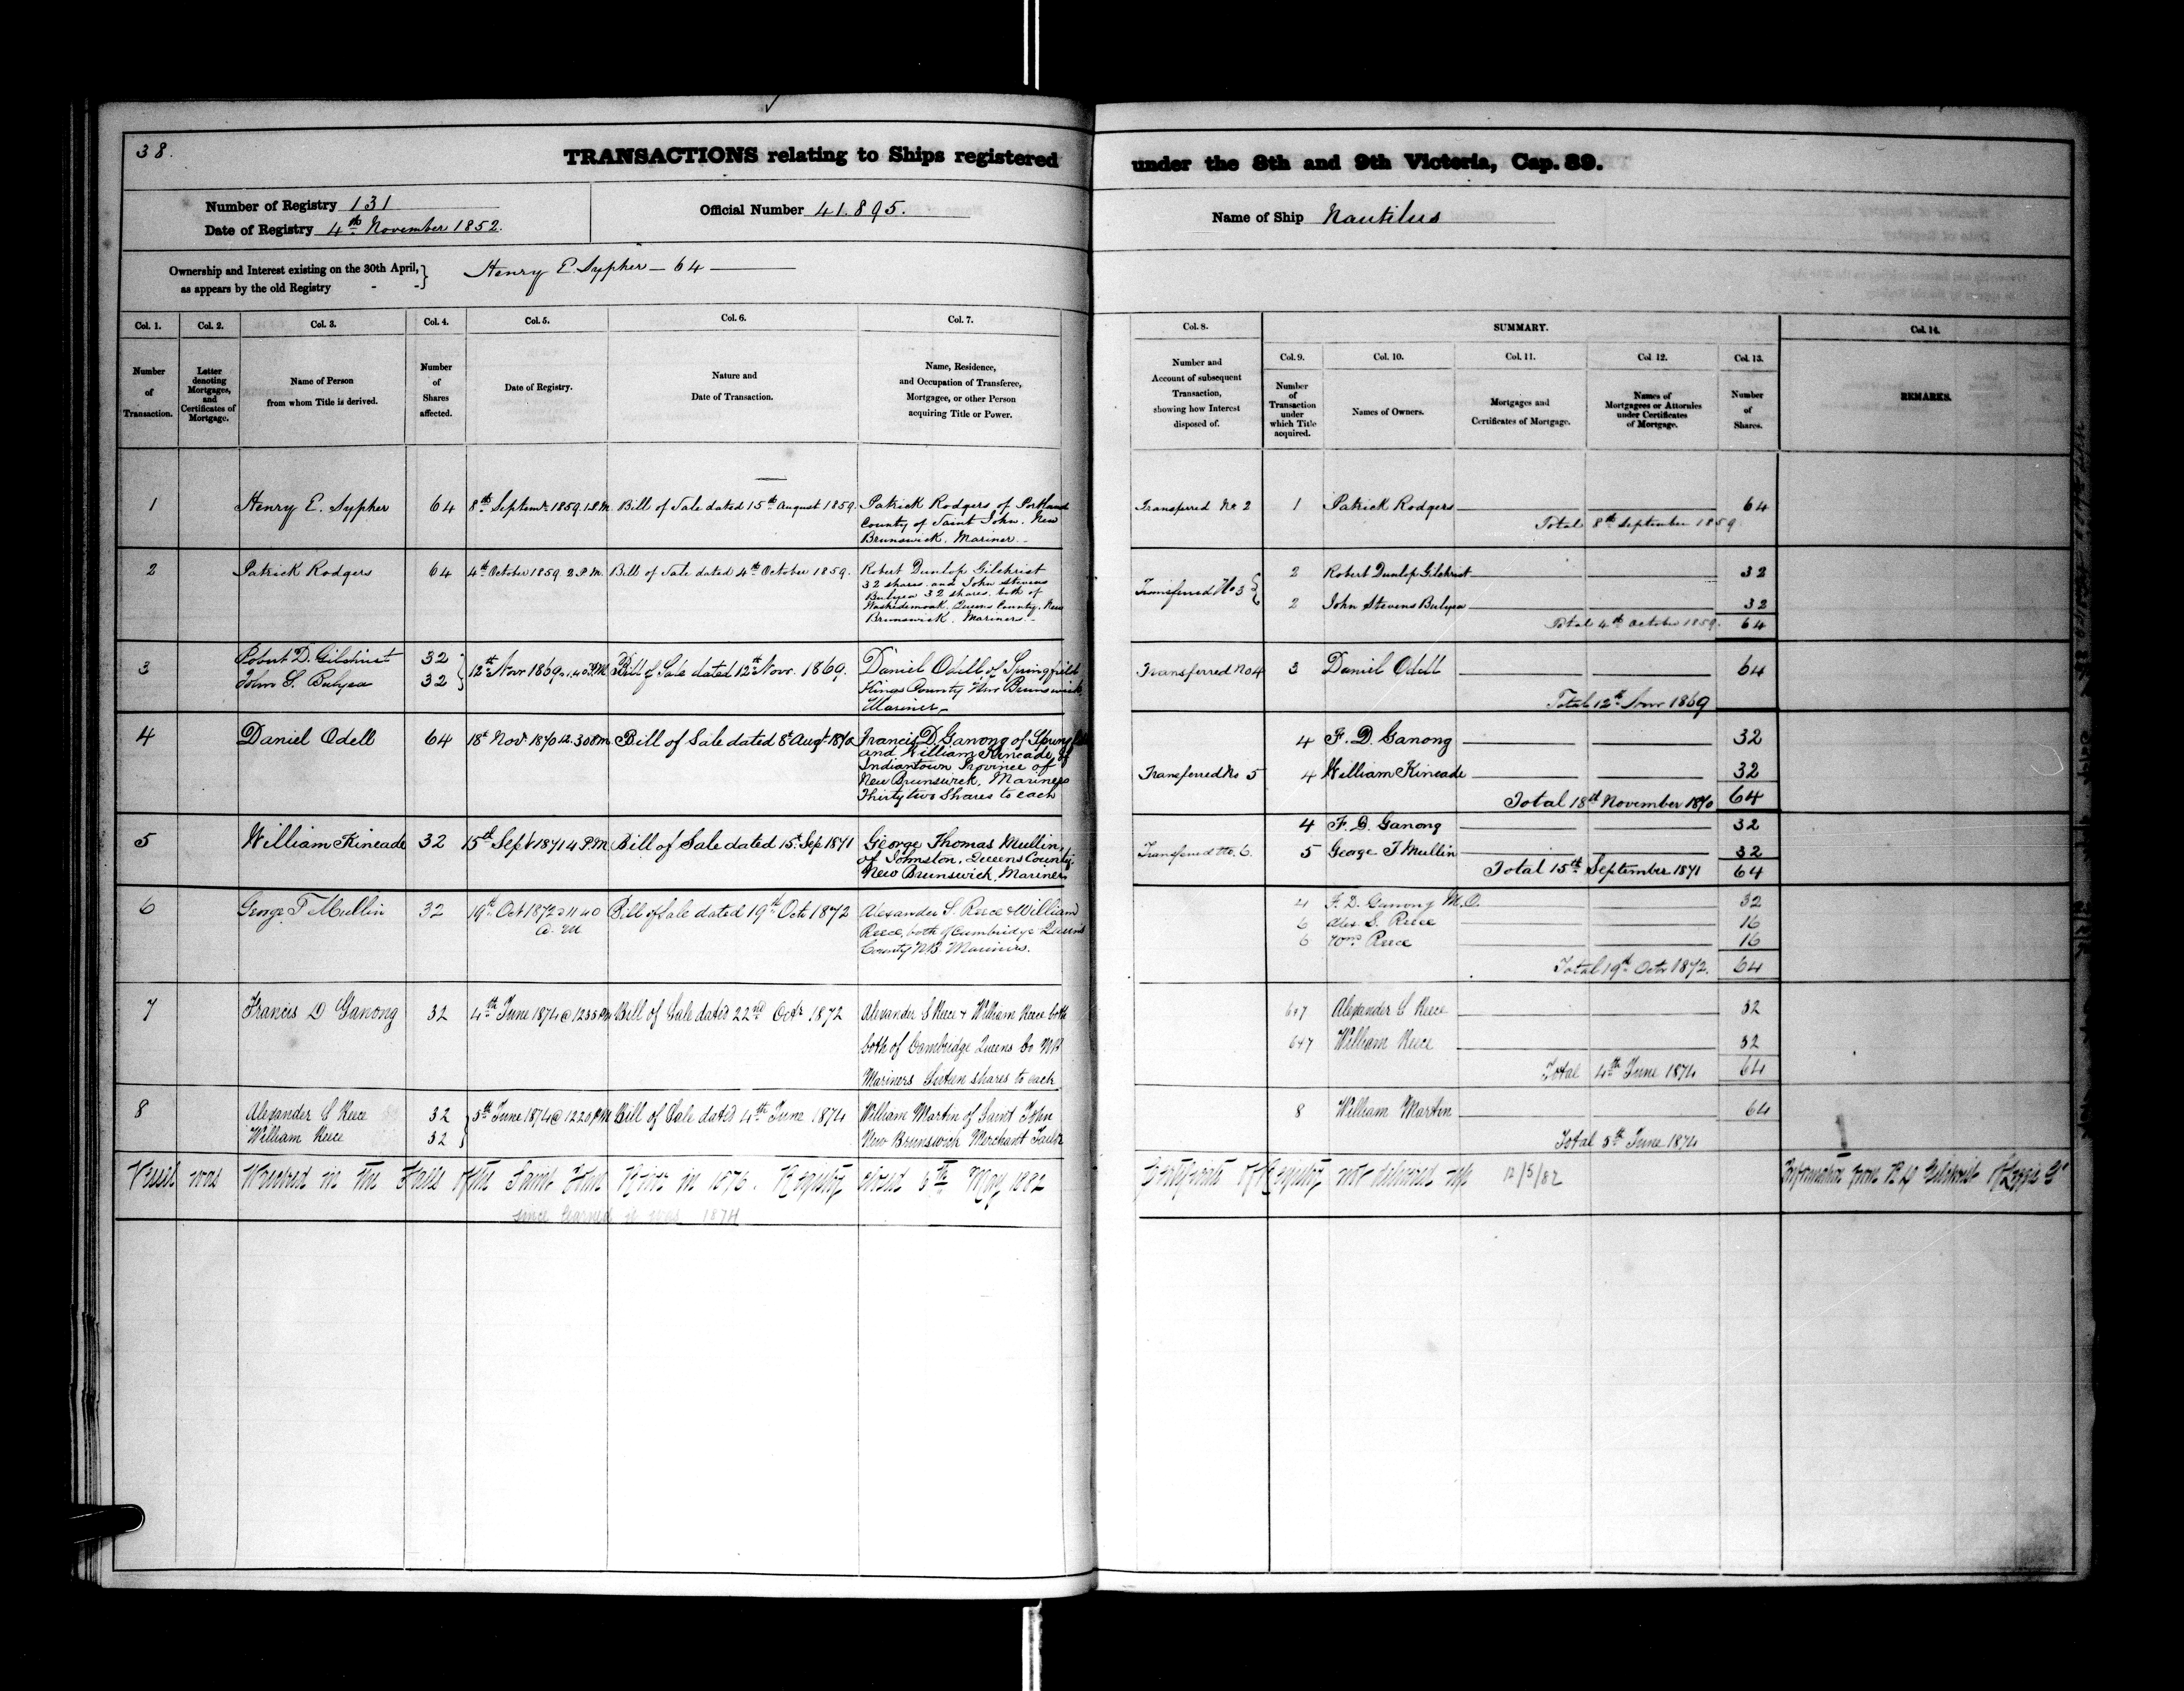 38.
TRANSACTIONS relating to Ships registered under the 8th and 9th Victoria, Cap. 89.
Number of Registry 131
Date of Registry 4th November 1852.
Official Number 41.895.
Name of Ship Nautilus
Ownership and Interest existing on the 30th April, as appears by the old Registry - - } Henry E. Sypher — 64
Col. 1. Col. 2. Col. 3. Col. 4. Col. 5. Col. 6. Col. 7. Col. 8. SUMMARY. Col. 14.
Col. 9. Col. 10. Col. 11. Col. 12. Col. 13.
Number of Transaction.
Letter denoting Mortgages, and Certificates of Mortgage.
Name of Person from whom Title is derived.
Number of Shares affected.
Date of Registry.
Nature and Date of Transaction.
Name, Residence, and Occupation of Transferee, Mortgagee, or other Person acquiring Title or Power.
Number and Account of subsequent Transaction, showing how Interest disposed of.
Number of Transaction under which Title acquired.
Names of Owners.
Mortgages and Certificates of Mortgage.
Names of Mortgagees or Attornies under Certificates of Mortgage.
Number of Shares.
REMARKS.
1 Henry E. Sypher 64 8th Septemr. 1859. 1 P.M. Bill of Sale dated 15th August 1859. Patrick Rodgers of Portland
County of Saint John. New
Brunswick. Mariner.
Transferred No 2 1 Patrick Rodgers 64
Total 8th September 1859
2 Patrick Rodgers 64 4th October 1859. 2 P.M. Bill of Sale dated 4th October 1859. Robert Dunlop Gilchrist
32 shares. and John Stevens
Bulyea 32 shares. both of
Washedemoak. Queens County. New
Brunswick. Mariners.
Transferred No 3 { 2 Robert Dunlop Gilchrist 32
2 John Stevens Bulyea 32
Total 4th October 1859. 64
3 Robert D. Gilchrist 32
John S. Bulyea 32 } 12th Novr 1869. 1.40 P.M. Bill of Sale dated 12th Novr. 1869. Daniel Odell of Springfield
Kings County New Brunswick
Mariner
Transferred No 4 3 Daniel Odell 64
Total 12th Novr 1869
4 Daniel Odell 64 18th Novr 1870 12.30 P.M. Bill of Sale dated 8th Augt 1870 Francis D. Ganong of
and William Kincade of
Indiantown Province of
New Brunswick, Mariners
Thirty two Shares to each
Transferred No 5 4 F. D. Ganong 32
4 William Kincade 32
Total 18th November 1870 64
5 William Kincade 32 15th Sept 1871 4 P.M. Bill of Sale dated 15th Sep 1871 George Thomas Mullin,
of Johnston, Queens County,
New Brunswick, Mariner
Transferred No. 6. 4 F. D. Ganong 32
5 George T Mullin 32
Total 15th September 1871 64
6 George T Mullin 32 19th Oct 1872 @ 11 40
a. m Bill of Sale dated 19th Octr 1872 Alexander S. Reece & William
Reece, both of Cambridge Queens
County N.B. Mariners.
4 F. D. Ganong M.O. 32
6 Alex. S. Reece 16
6 Wm. Reece 16
Total 19th Octr 1872. 64
7 Francis D Ganong 32 4th June 1874 @ 1235 PM Bill of Sale dated 22nd Octr 1872 Alexander S Reece & William Reece both
both of Cambridge Queens Co NB
Mariners Sixteen shares to each
6&7 Alexander S Reece 32
6&7 William Reece 32
Total 4th June 1874 64
8 Alexander S Reece 32
William Reece 32 } 5th June 1874 @ 1220 PM Bill of Sale dated 4th June 1874 William Martin of Saint John
New Brunswick Merchant Tailor
8 William Martin 64
Total 5th June 1874
Vessel was Wrecked in the Falls of the Saint John River in 1876. Registry closed 6th May 1882
since learned it was 1874
Certificate of Registry not delivered up 12/5/82
Information from R D Gilchrist